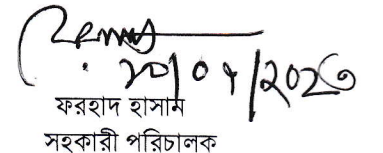 ২০/০৭/২০২৩
ফরহাদ হাসান
সহকারী পরিচালক